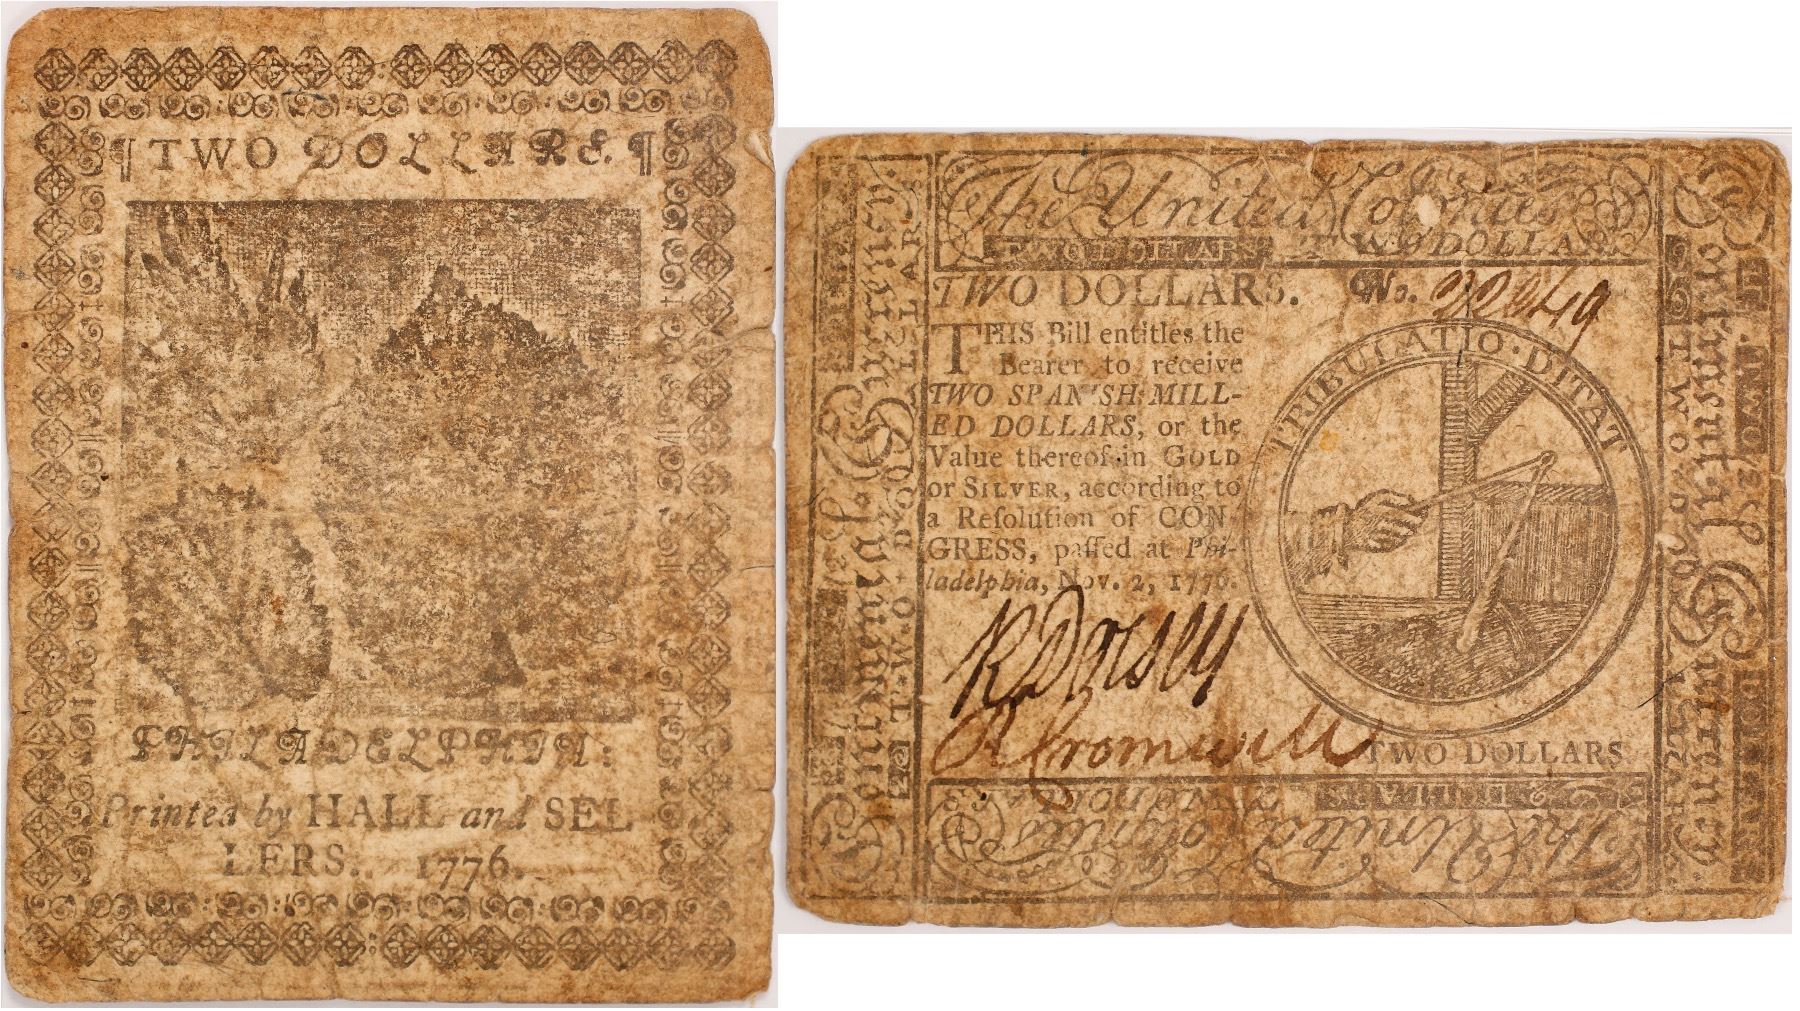 ¶ TWO DOLLARS. ¶
PHILADELPHIA:
Printed by HALL and SEL
LERS. 1776.
The United Colonies
TWO DOLLARS TWO DOLLARS
TWO DOLLARS. No. 
THIS Bill entitles the
Bearer to receive
TWO SPANISH MILL-
ED DOLLARS, or the
Value thereof in GOLD
or SILVER, according to
a Reſolution of CON
GRESS, paſſed at Phi-
ladelphia, Nov. 2, 1776.
TRIBULATIO · DITAT
R Dorsey
Cromwell
TWO DOLLARS
The United Colonies
Continental Currency
TWO DOLLARS
Continental Currency
TWO DOLLARS